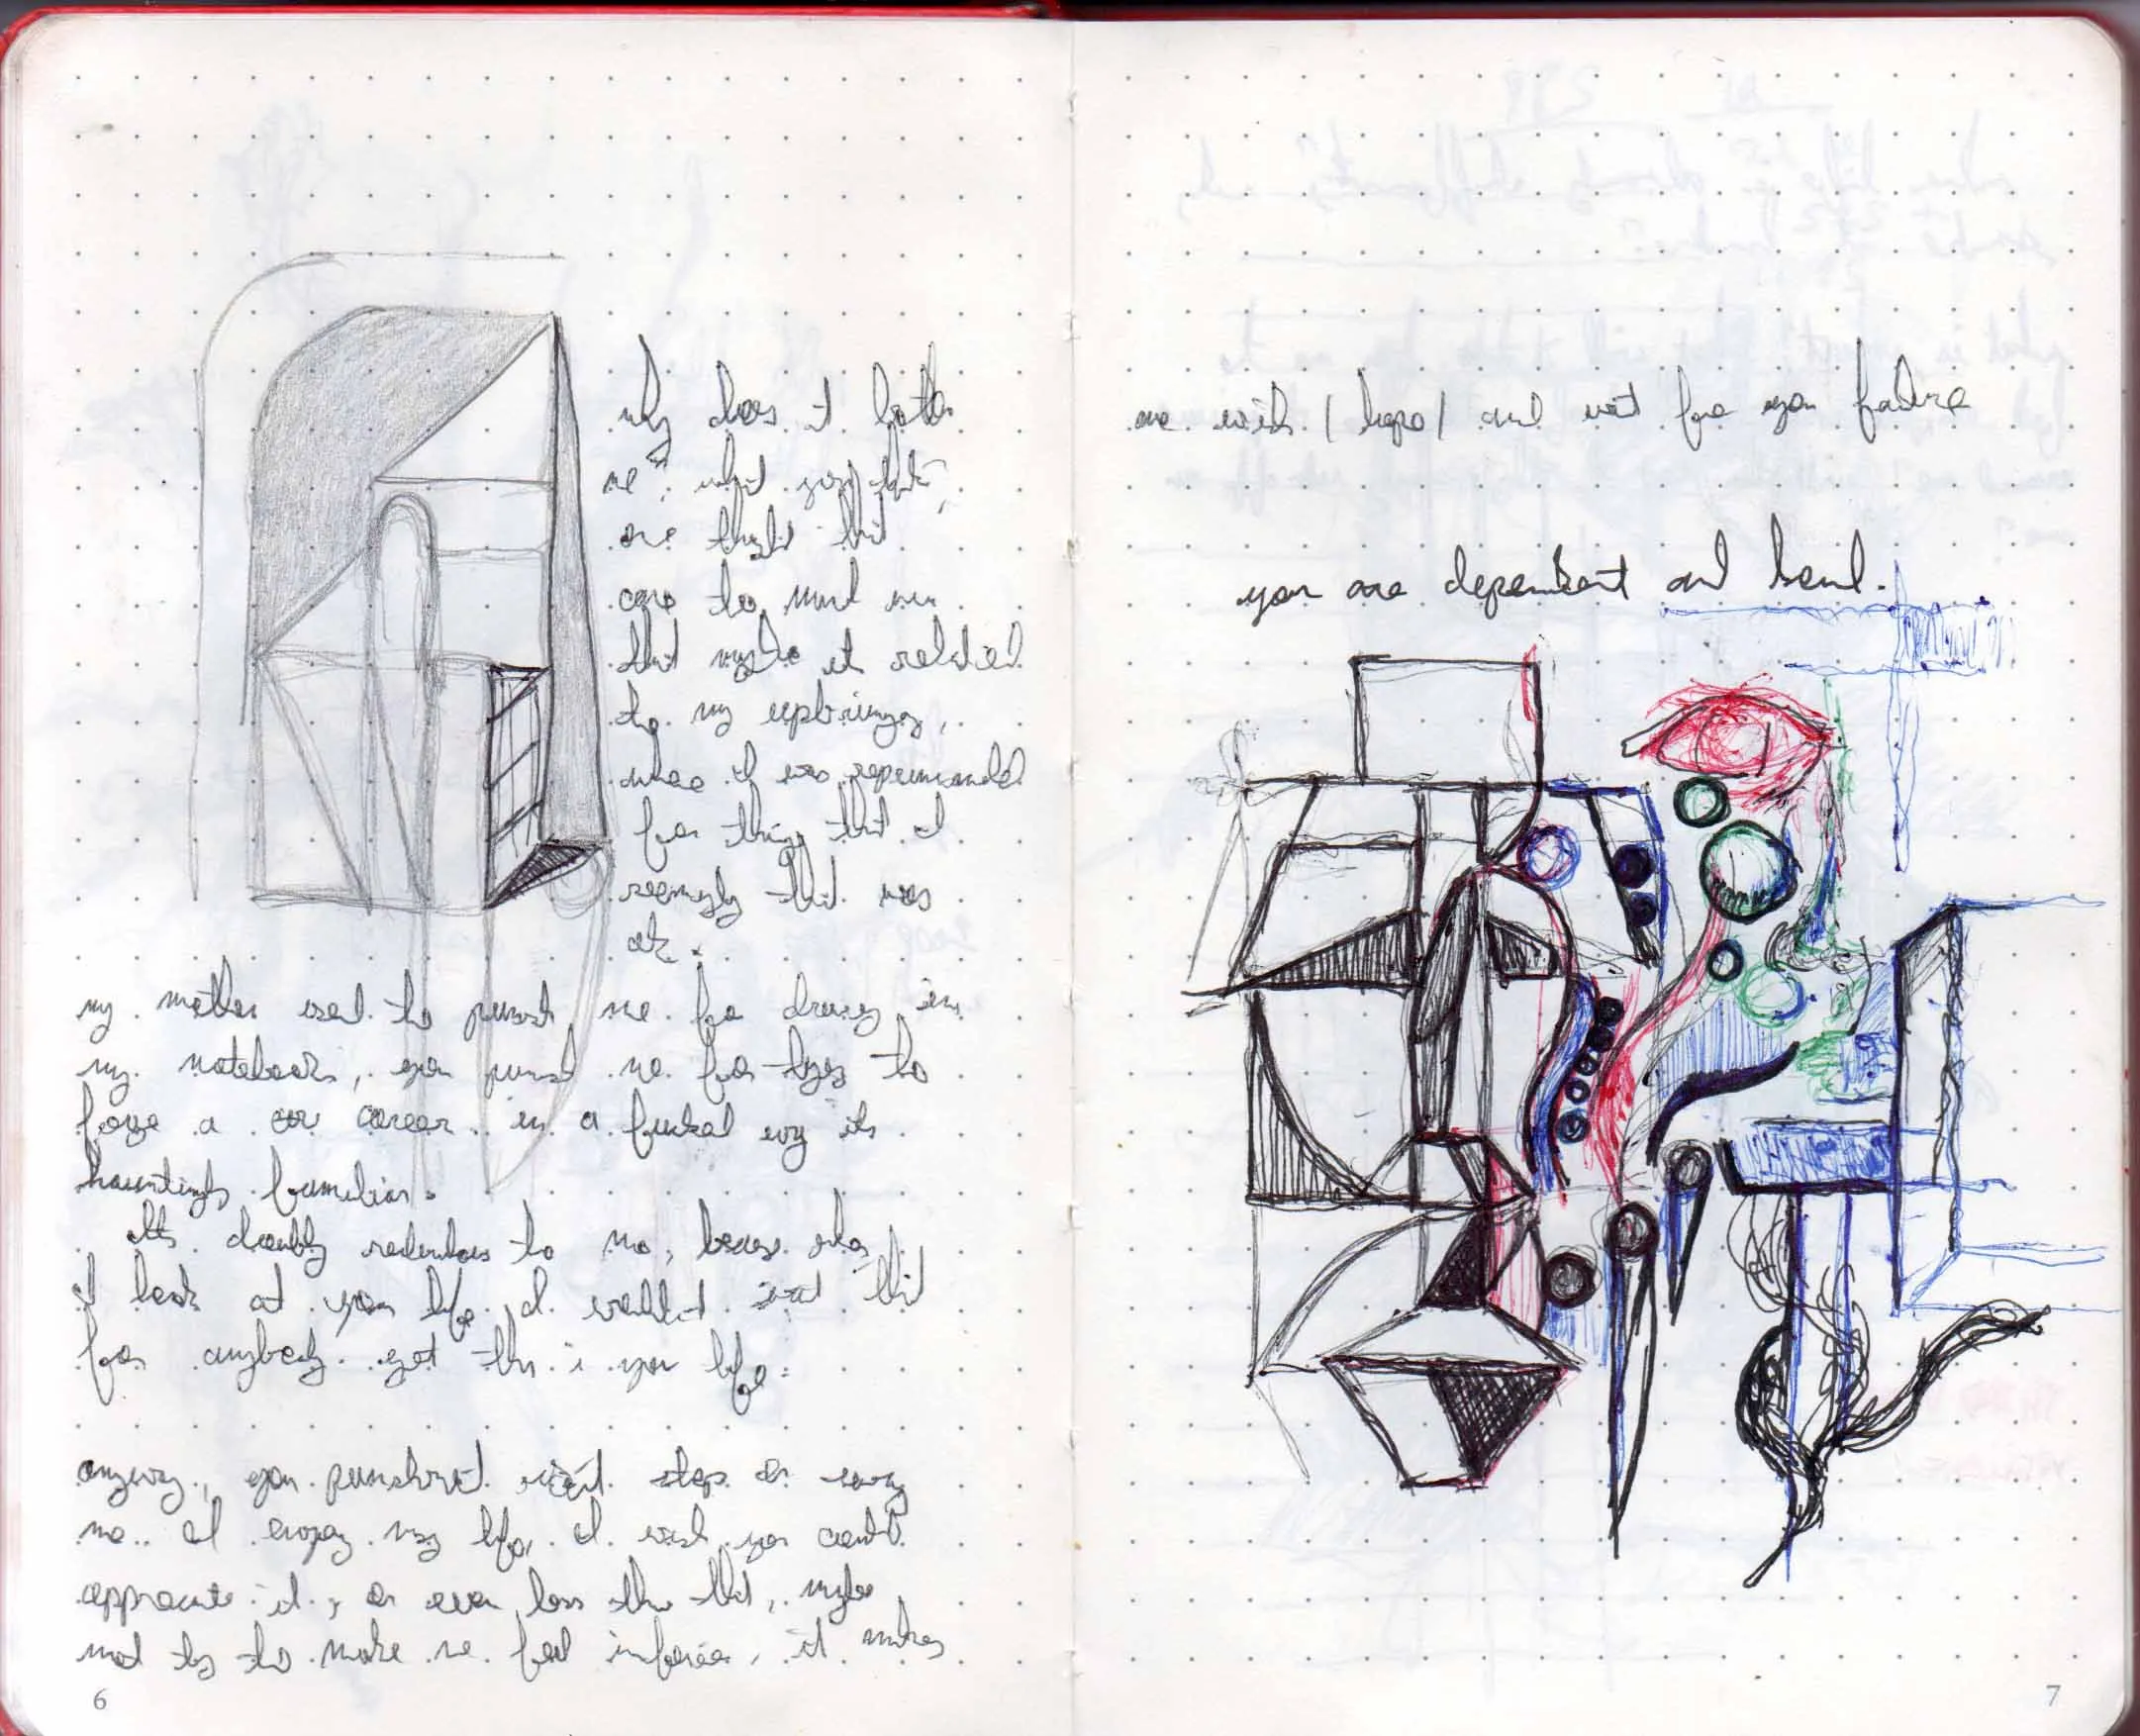 why does it bother
me, what
one thought that
came to mind was
that maybe it related
to my upbringing,
when I was reprimanded
for things that I
seemingly that was
ok.
my mother used to punish me for drawing in
my notebooks, you punish me for trying to
forge a career in a way its
hauntingly familiar.
Its doubly to me, because when
I look at your life, I wouldnt want that
for anybody. yet this is your life.
anyway, you punishment wont stop or
me. I enjoy my life, I wish you could
appreciate it, or even less than that, maybe
not try to make me feel inferior, it makes
6
me wish / hope / and wait for your failure
you are dependent and
7